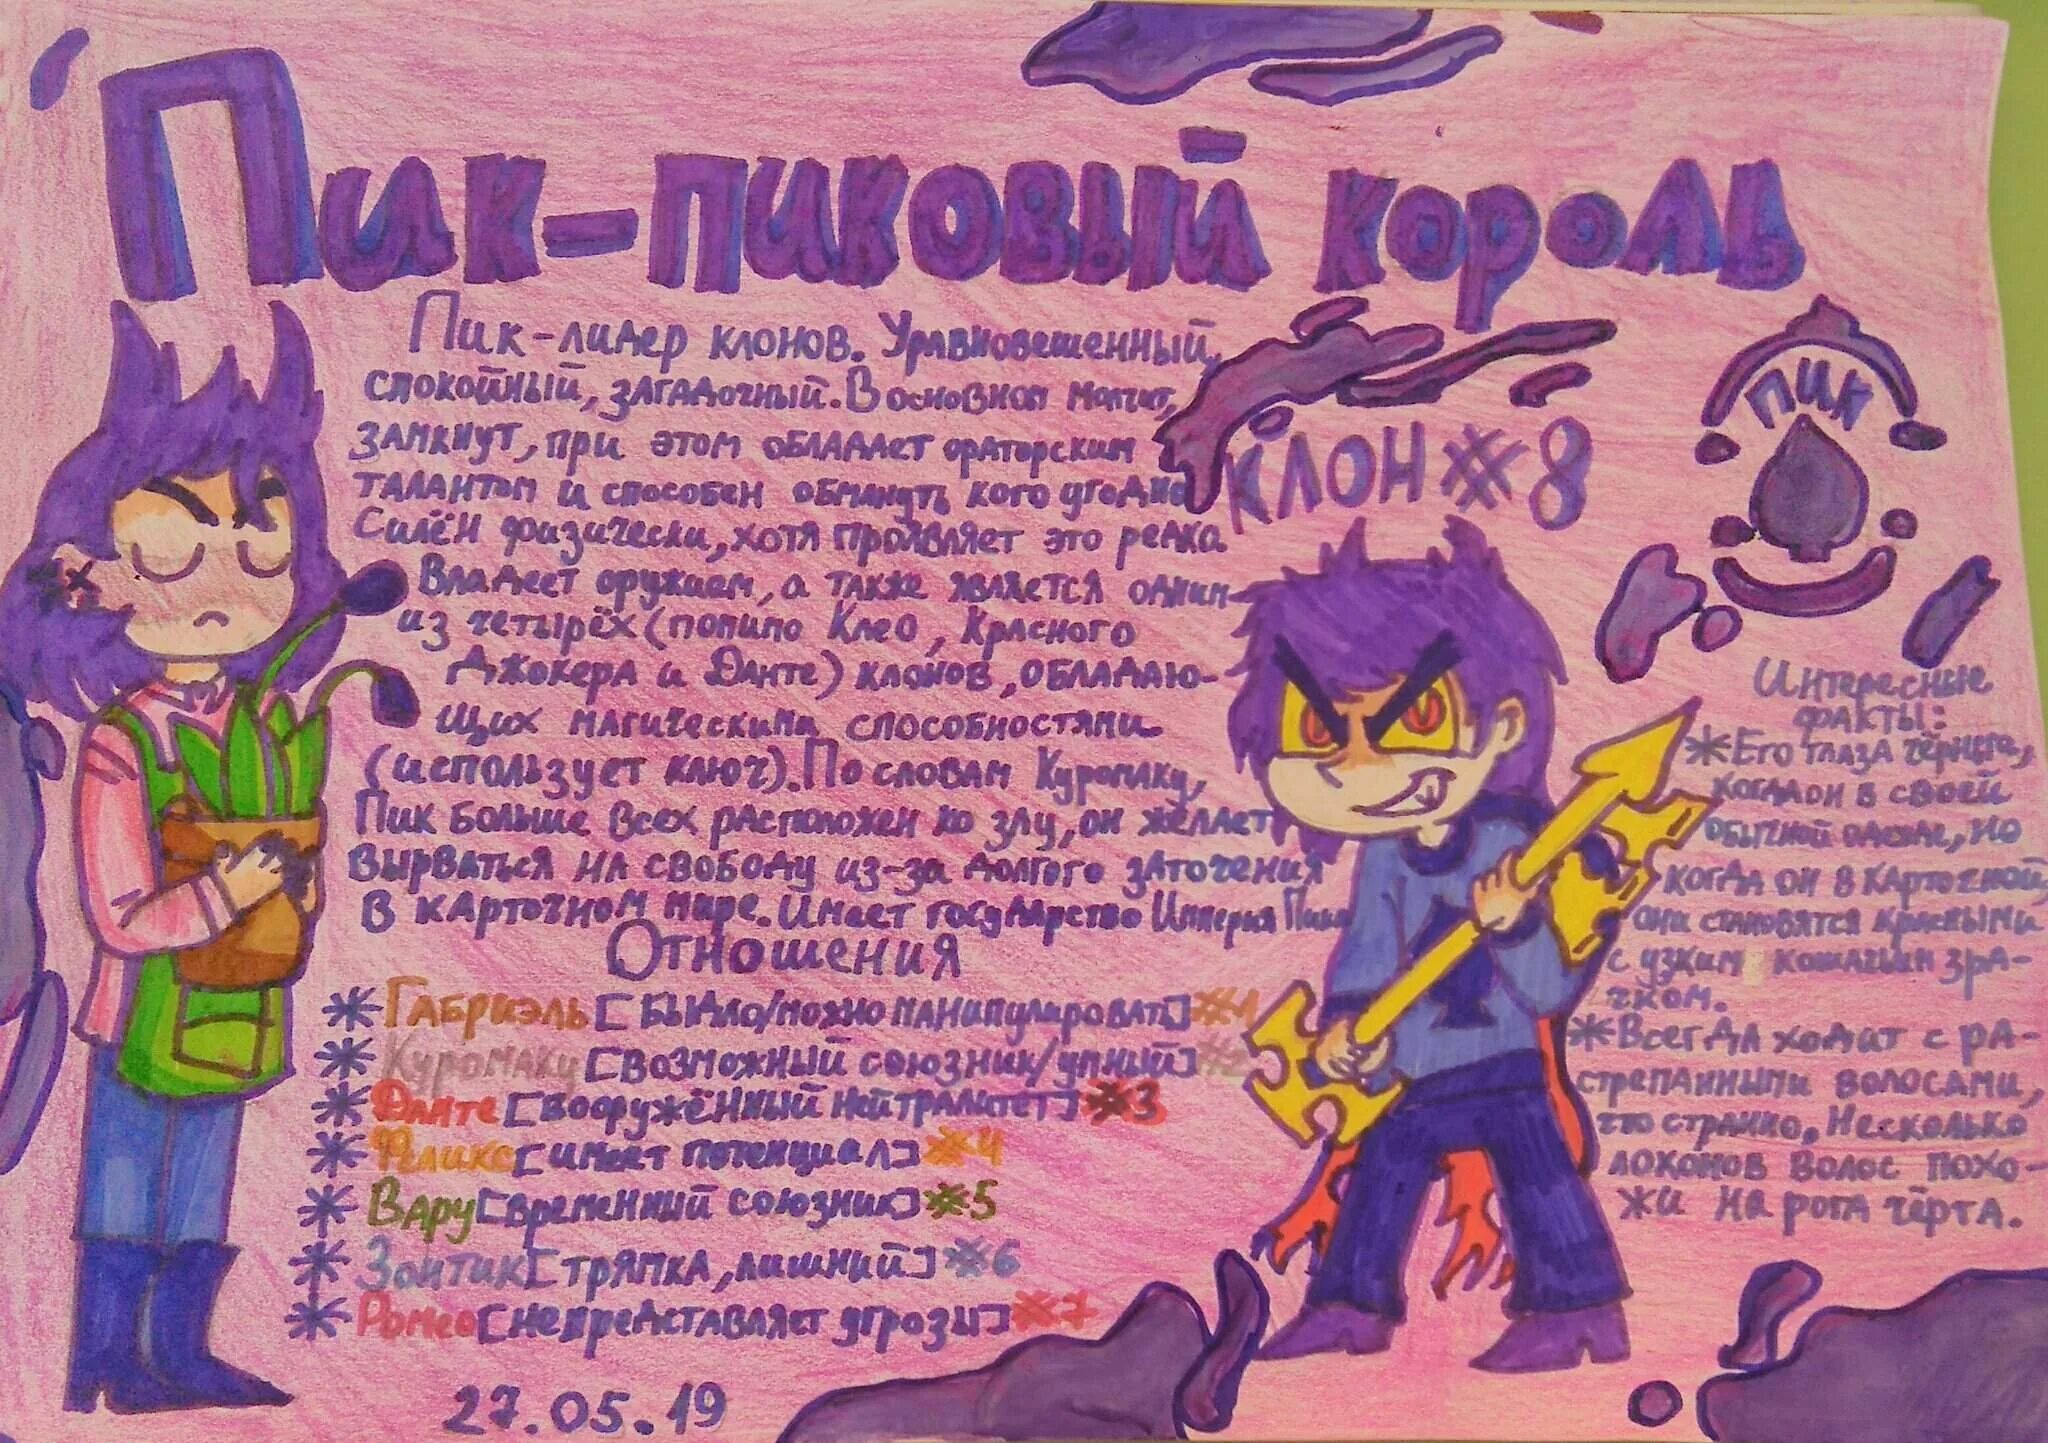 Пик-пиковый король
Пик-лидер клонов. Уравновешенный,
спокойный, загадочный. В основном молчит,
замкнут, при этом обладает ораторским
талантом и способен обмануть кого угодно
Силён физически, хотя проявляет это редко.
Владеет оружием, а также является одним
из четырёх (помимо Клео, Красного
Джокера и Данте) клонов, обладаю-
щих магическими способностями.
(использует ключ). По словам Куромаку,
Пик больше всех расположен ко злу, он желает
вырваться на свободу из-за долгого заточения
в карточном мире. Имеет государство Империя Пика
Отношения
*Габриэль [быдло/можно манипулировать] #1
*Куромаку [возможный союзник/умный] #2
*Данте [вооружённый нейтралитет] #3
*Феликс [имеет потенциал] #4
*Вару [временный союзник] #5
*Зонтик [тряпка, лишний] #6
*Ромео [не представляет угрозы] #7
27.05.19
Клон #8
ПИК
Интересные
факты:
*Его глаза чёрные,
когда он в своей
обычной одежде, но
когда он в карточной,
они становятся красными
с узким кошачьим зра-
чком.
*Всегда ходит с ра-
стрепанными волосами,
что странно. Несколько
локонов волос похо-
жи на рога чёрта.